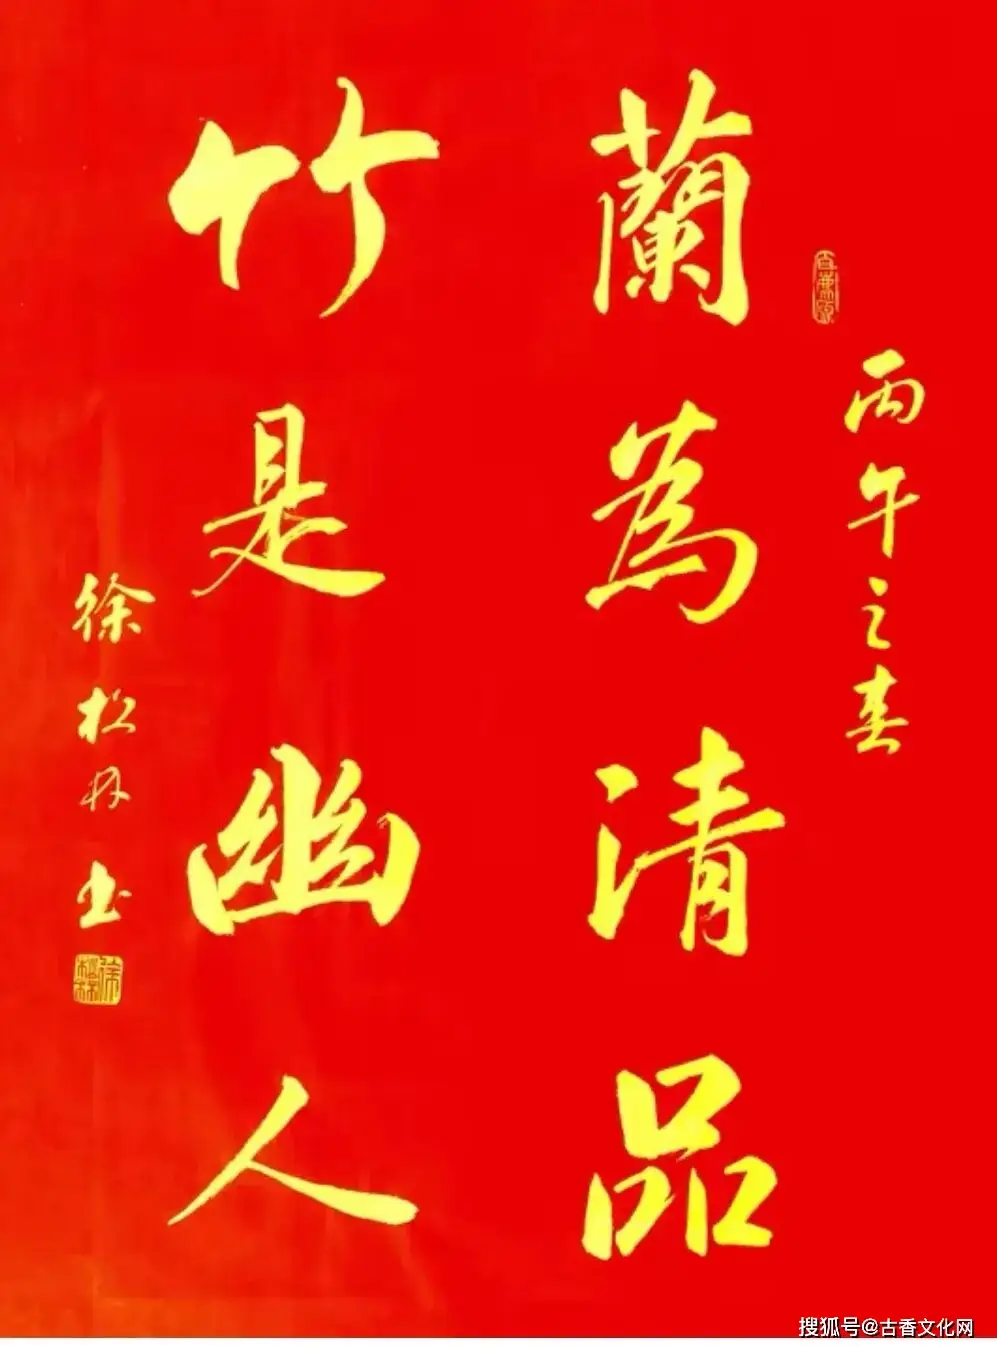 丙午之春
蘭為清品
竹是幽人
徐松丹书
搜狐号@古香文化网